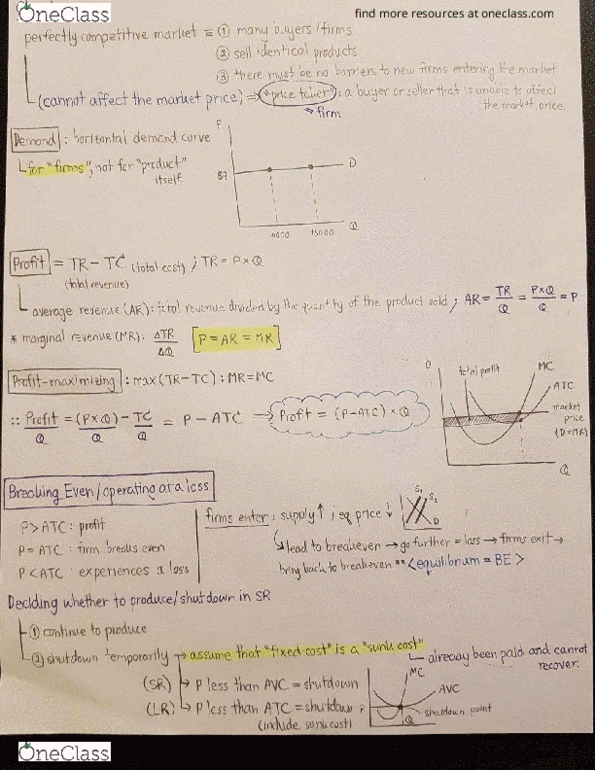 OneClass
find more resources at oneclass.com
perfectly competitive market = ① many buyers/firms
② sell identical products
③ there must be no barriers to new firms entering the market
(cannot affect the market price) ⇒ "price taker": a buyer or seller that is unable to affect
the market price.
firm
Demand : horizontal demand curve
for "firms", not for "product"
itself.
P
$7
D
6000
15000
Q
Profit = TR - TC (total cost) ; TR = P×Q
(total revenue)
average revenue (AR): total revenue divided by the quantity of the product sold ; AR = TR/Q = P×Q/Q = P
* marginal revenue (MR): ΔTR/ΔQ [P = AR = MR]
Profit-maximizing : max (TR-TC) : MR=MC
:: Profit/Q = (P×Q)/Q - TC/Q = P - ATC → Profit = (P-ATC) × Q
total profit
MC
ATC
market
price
(D=MR)
Q
Breaking Even/operating at a loss
P > ATC : profit
P = ATC : firm breaks even
P < ATC : experiences a loss
firms enter : supply ↑ ; eq price ↓
S₁
S₂
D
lead to breakeven → go further = loss → firms exit →
bring back to breakeven <equilibrium = BE>
Deciding whether to produce/shutdown in SR
① continue to produce
② shutdown temporarily → assume that "fixed cost" is a "sunk cost"
already been paid and cannot
recover.
(SR) → P less than AVC = shutdown
(LR) → P less than ATC = shutdown
(include sunk cost)
MC
AVC
P
shutdown point
Q
OneClass